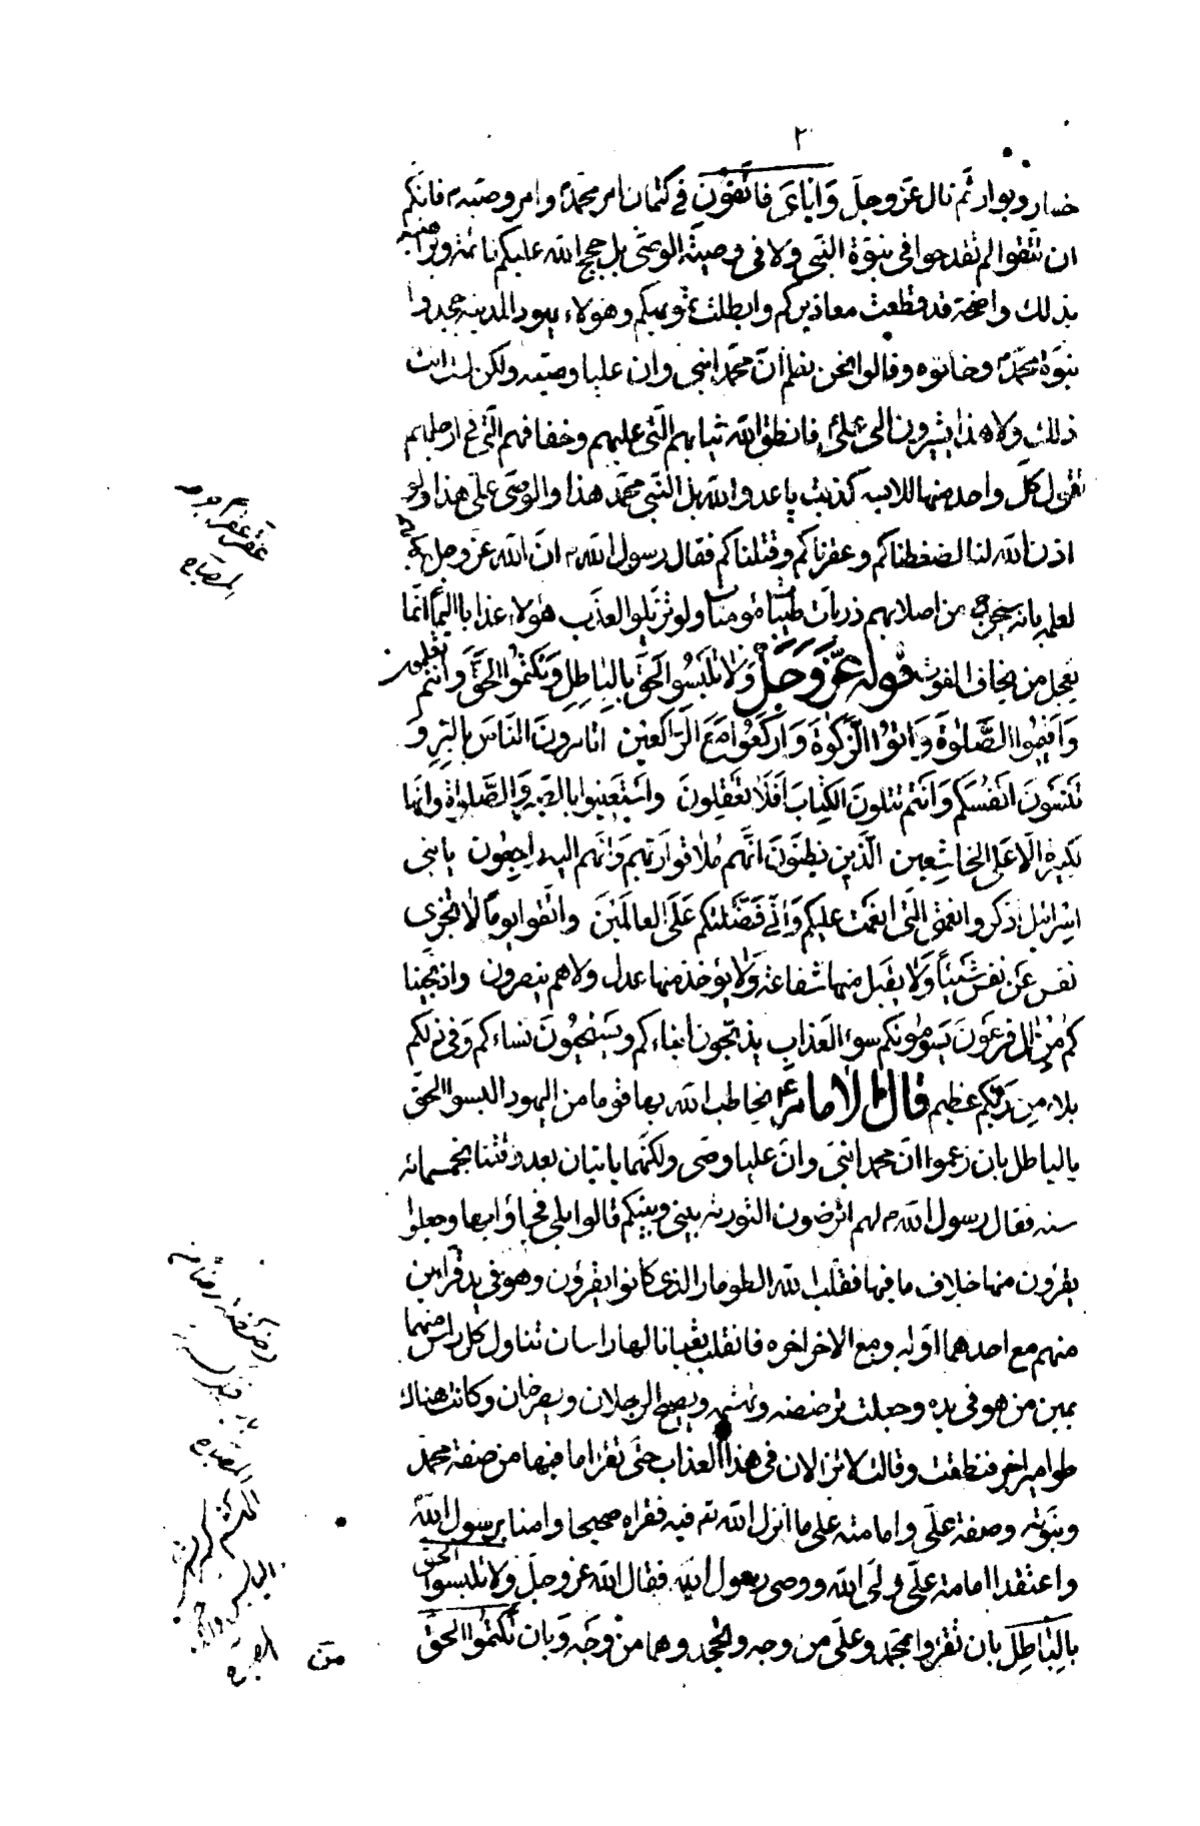 ٢
خسار وبوار ثم قال عز وجل وَاِيّاىَ فَاتَّقُونِ فى كتمان امر محمد وامر وصيه فانكم
ان تتقوا لم تقدحوا فى نبوة النبى ولا فى وصية الوصى بل حجج الله عليكم قائمة وبراهينه
بذلك واضحة قد قطعت معاذيركم وابطلت تمويهكم وهؤلاء يهود المدينه جحدوا
نبوة محمد وخانوه وقالوا نحن نعلم ان محمدا نبى وان عليا وصيه ولكن لست انت
ذلك ولا هذا يشيرون الى على فانطق الله ثيابهم التى عليهم وخفافهم التى فى ارجلهم
تقول كل واحد منها للابسه كذبت يا عدو الله بل النبى محمد هذا والوصى على هذا ولو
اذن الله لنا لضغطناكم وعقرناكم وقتلناكم فقال رسول الله ان الله عز وجل يمهلهم
لعلمه بانه سيخرج من اصلابهم ذريات طيبات مؤمنات ولو تزيلوا لعذب هؤلاء عذابا اليما انما
يعجل من يخاف الفوت قوله عَزَّ وَجَلَّ وَلاٰ تَلْبِسُوا الْحَقَّ بِالْبٰاطِلِ وَتَكْتُمُوا الْحَقَّ وَاَنْتُمْ تعلمون
وَاَقيمُوا الصَّلٰوةَ وَاٰتُوا الزَّكٰوةَ وَارْكَعُوا مَعَ الرّٰاكِعينَ اتامرونَ النّاسَ بِالْبِرِ وَ
تَنْسَوْنَ اَنْفُسَكُم وَاَنْتُم تتلونَ الكِتٰابَ اَفَلاٰ تعْقِلونَ واسْتَعينوا بالصبر وَالصَّلوٰة وانها
لكبيرة الّا عَلَى الخاشِعين الَّذين يَظنّونَ انَّهم مُلاٰقوا رَبّهم وَانّهم اليه راجِعُون يا بنى
اسرائيل اذكروا نعمتى الَّتى انعَمْت عليكم وَانّى فَضَّلتكم عَلَى العالَمينَ واتّقوا يومًا لاٰ تجْزى
نفس عَن نفسٍ شَيئًا وَلاٰ يقْبَل منها شفاعة وَلاٰ يؤخذ منها عدل ولا هم ينصرون واذ نجّينا
كم مِنْ اٰل فرعَونَ يَسومُونكم سوء العَذاب يذبّحون ابناءكم ويَسْتحيُونَ نساءكم وَفى ذلكم
بلاء مِن رَبّكم عظيم قال الامام يخاطب الله بها قوما من اليهود البسوا الحق
بالباطل بان زعموا ان محمدا نبى وان عليا وصى ولكنهما ياتيان بعد وقتنا بخمسمائة
سنه فقال رسول الله لهم اترضون التورية بينى وبينكم قالوا بلى فجاؤا بها وجعلوا
يقرؤن منها خلاف ما فيها فقلب الله الطومار الذى كانوا يقرؤن وهو فى يد قراءين
منهم مع احدهما اوله ومع الاخر اخره فانقلب ثعبانا لها راسان تناول كل راس منهما
يمين من هو فى يده وجعلت ترضضه وتهشمه ويصيح الرجلان ويصرخان وكانت هناك
طوامير اخر فنطقت وقالت لا تزالان فى هذا العذاب حتى تقرا ما فيها من صفة محمد
ونبوته وصفة على وامامته على ما انزل الله تع فيه فقراه صحيحا وامنا برسول الله
واعتقدا امامة على ولى الله ووصى رسول الله فقال الله عز وجل ولا تلبسوا الحق
بِالْبٰاطِلِ بان تقروا بمحمد وعلى من وجه وتجحدوهما من وجه وبان تكتموا الحق
من
المصباح